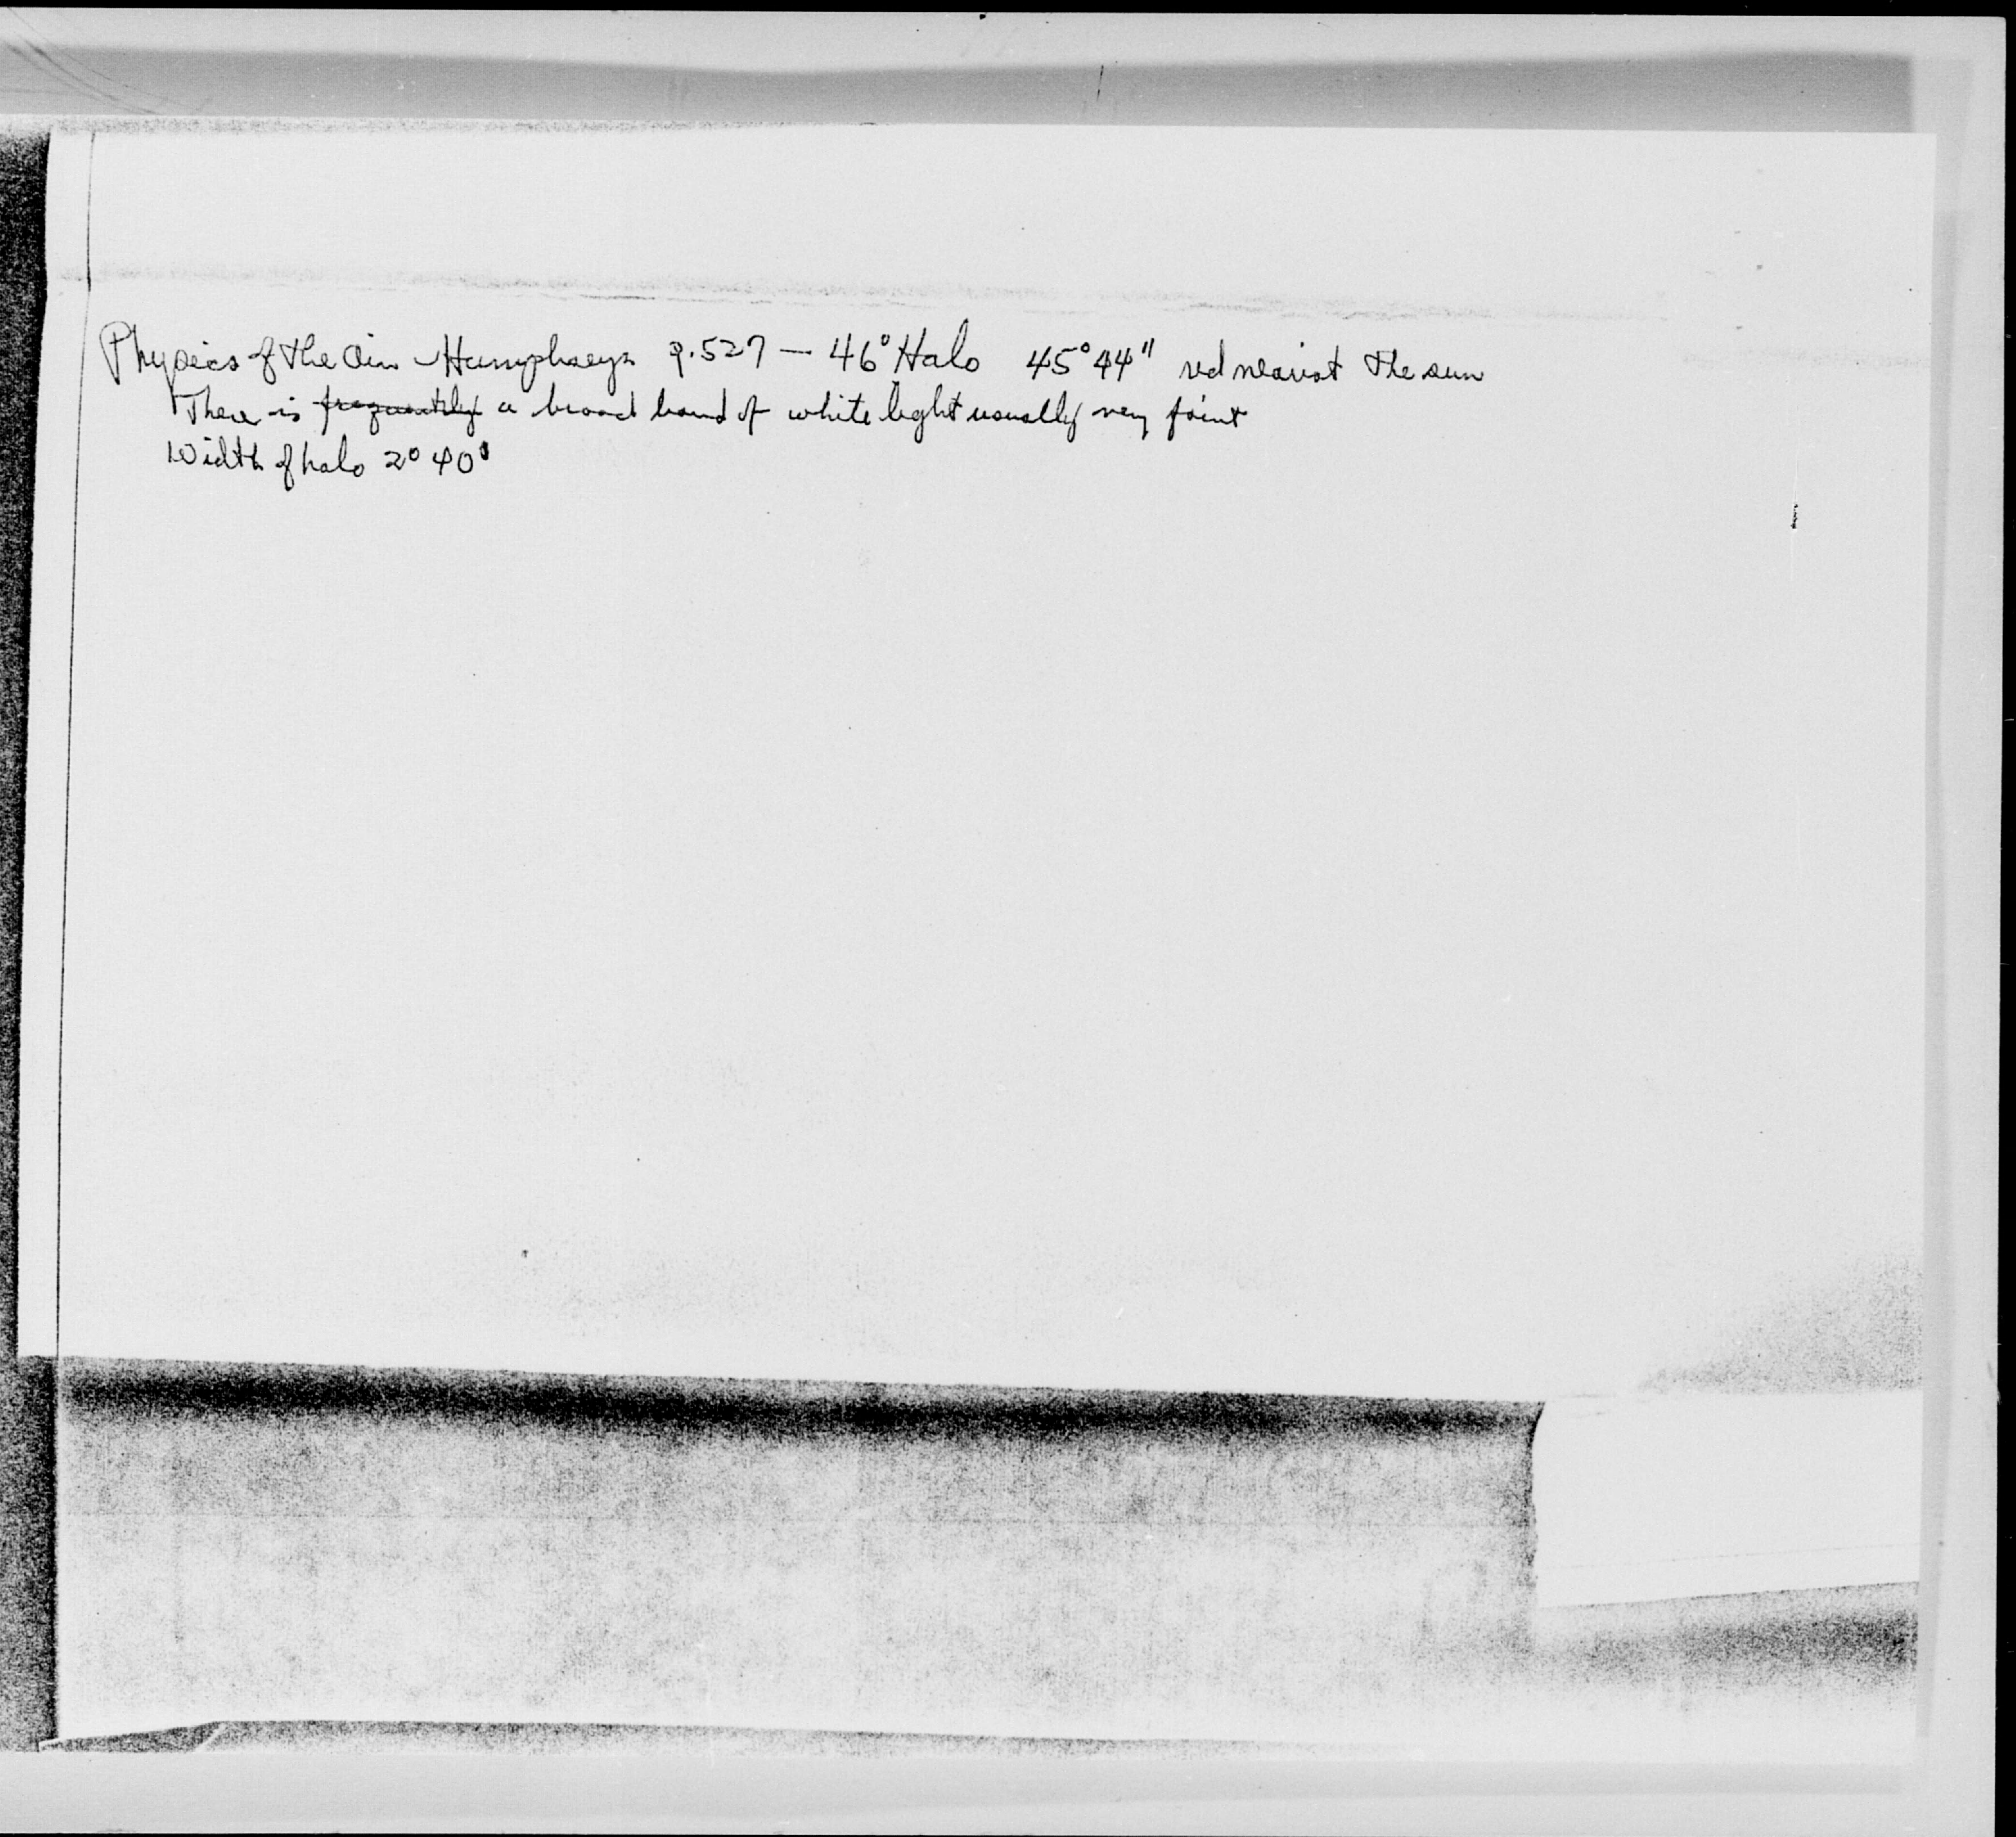 Physics of the Air - Humphreys p.527 — 46° Halo 45° 44" red nearest the sun
There is frequently a broad band of white light usually very faint
Width of halo 2° 40'